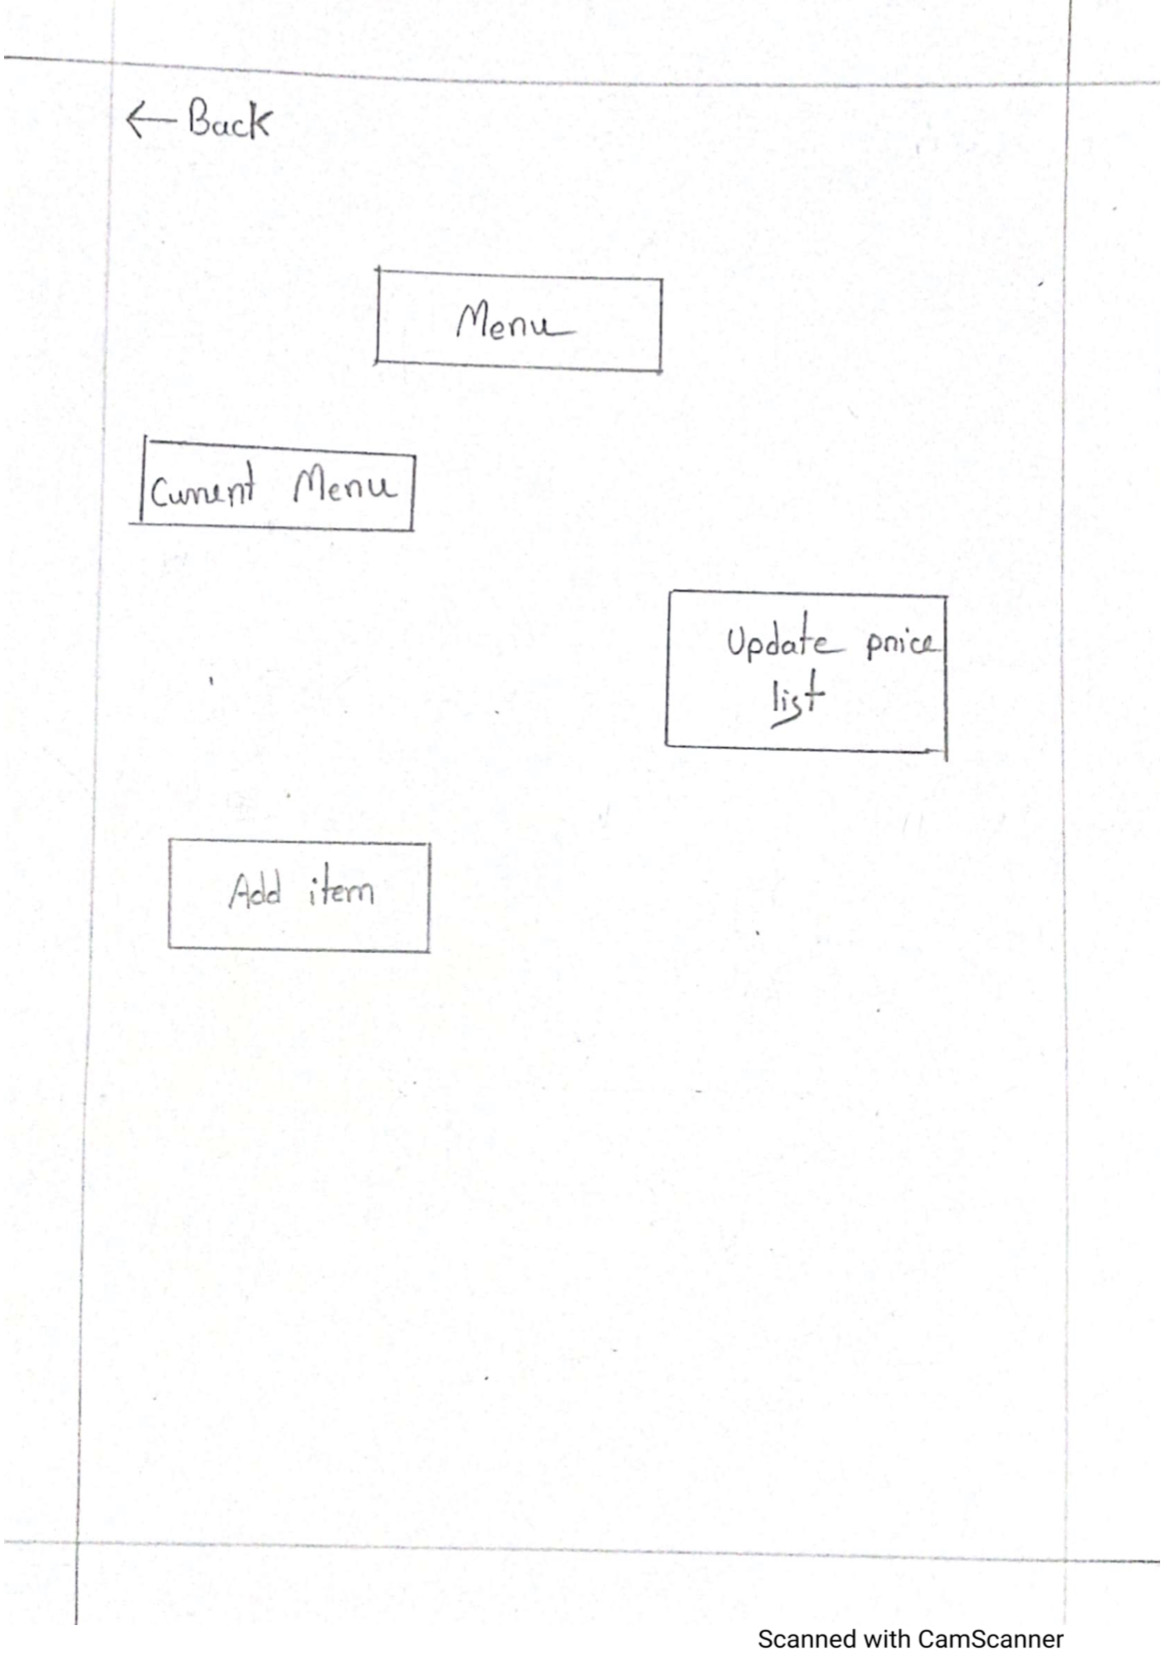 ← Back
Menu
Current Menu
Update price
list
Add item
Scanned with CamScanner